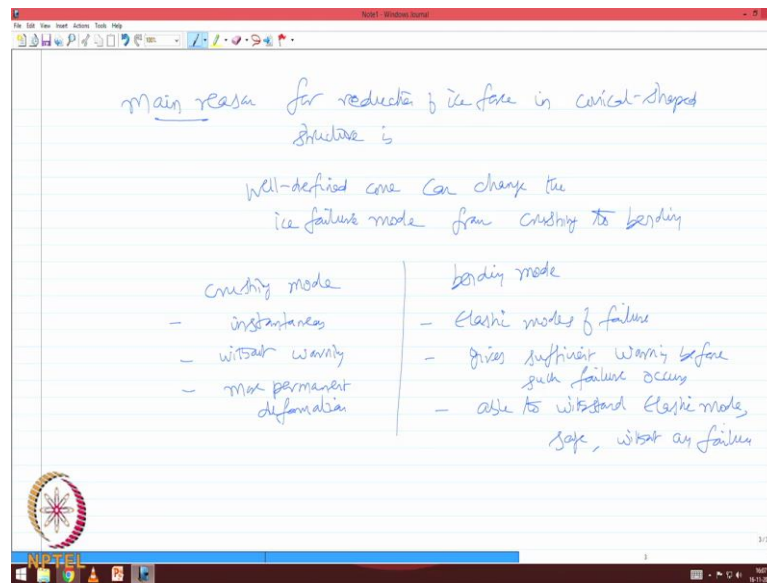 Note1 - Windows Journal
File Edit View Insert Actions Tools Help
Main reason for reduction of ice force in conical-shaped
structure is
Well-defined cone can change the
ice failure mode from crushing to bending
crushing mode
- instantaneous
- without warning
- max permanent
deformation
bending mode
- Elastic modes of failure
- gives sufficient warning before
such failure occurs
- able to withstand Elastic mode,
safe, without any failure
NPTEL
3